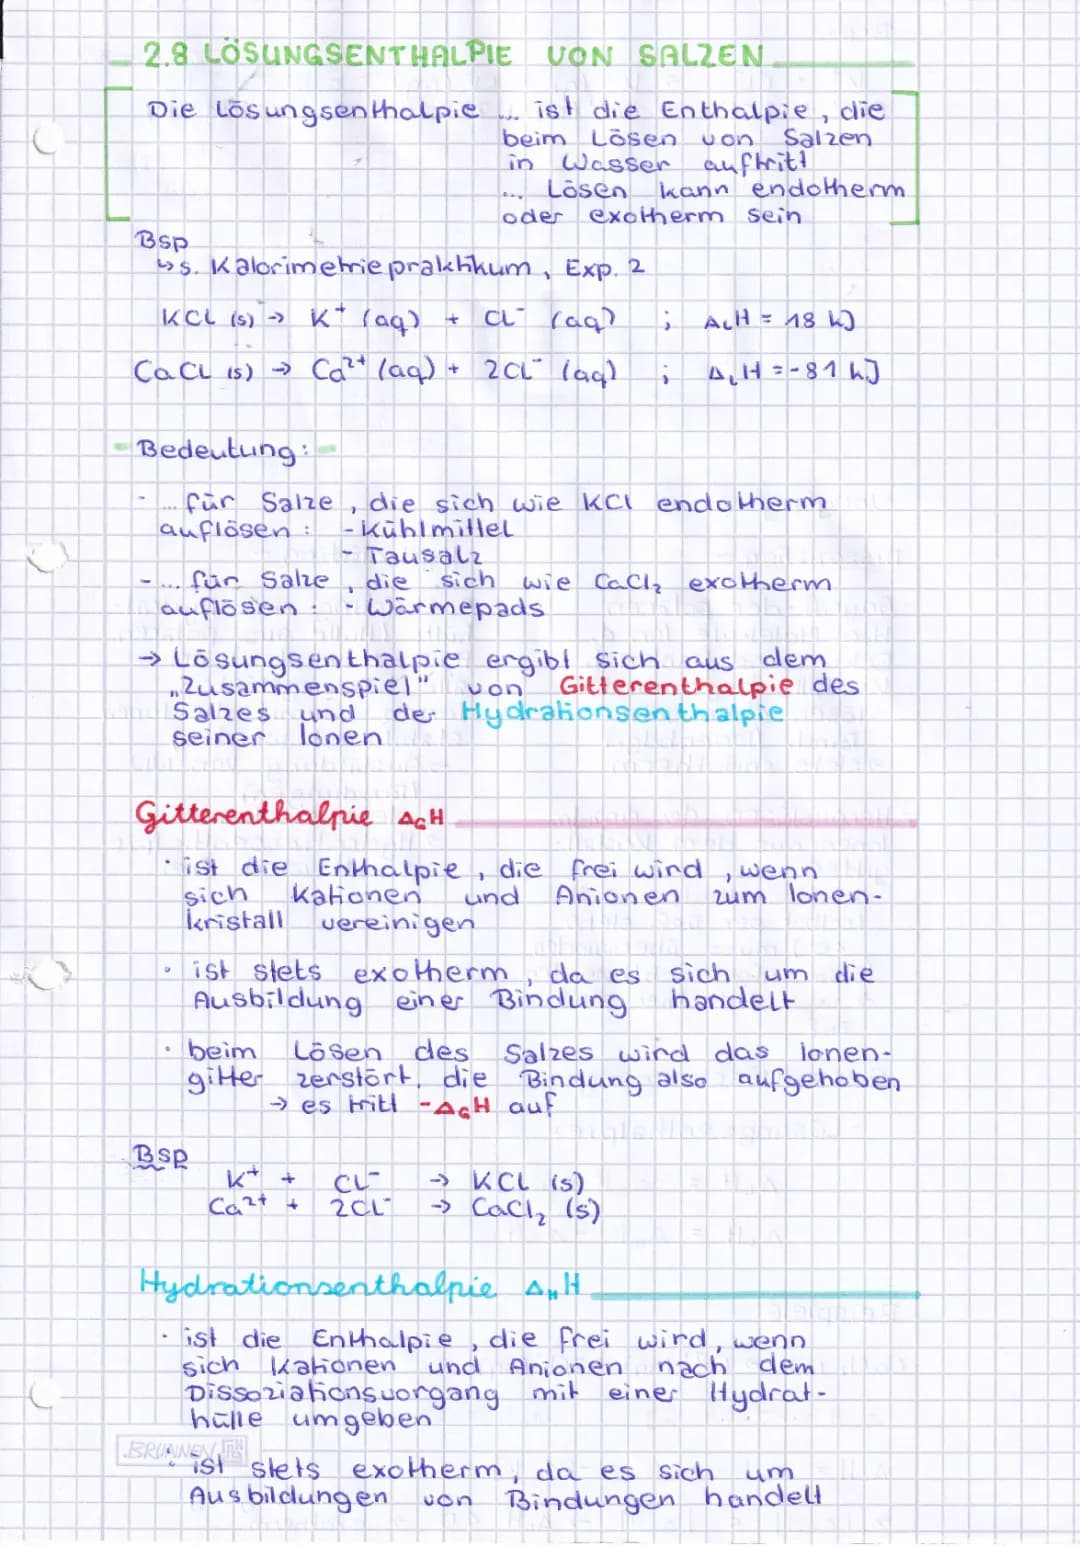 2.8 LÖSUNGSENTHALPIE VON SALZEN
Die Lösungsenthalpie ... ist die Enthalpie, die
beim Lösen von Salzen
in Wasser auftritt
... Lösen kann endotherm
oder exotherm sein
Bsp
↳ s. Kalorimetriepraktikum, Exp. 2
KCl (s) → K⁺ (aq) + Cl⁻ (aq) ; ΔLH = 18 kJ
CaCl (s) → Ca²⁺ (aq) + 2Cl⁻ (aq) ; ΔLH = -81 kJ
Bedeutung:
- ... für Salze, die sich wie KCl endotherm
auflösen: - Kühlmittel
- Tausalz
- ... für Salze, die sich wie CaCl₂ exotherm
auflösen: - Wärmepads
→ Lösungsenthalpie ergibt sich aus dem
„Zusammenspiel" von Gitterenthalpie des
Salzes und der Hydrationsenthalpie
seiner Ionen
Gitterenthalpie ΔGH
· ist die Enthalpie, die frei wird, wenn
sich Kationen und Anionen zum Ionen-
kristall vereinigen
· ist stets exotherm, da es sich um die
Ausbildung einer Bindung handelt
· beim Lösen des Salzes wird das Ionen-
gitter zerstört, die Bindung also aufgehoben
→ es tritt -ΔGH auf
Bsp
K⁺ + Cl⁻ → KCl (s)
Ca²⁺ + 2Cl⁻ → CaCl₂ (s)
Hydrationsenthalpie ΔHH
· ist die Enthalpie, die frei wird, wenn
sich Kationen und Anionen nach dem
Dissoziationsvorgang mit einer Hydrat-
hülle umgeben
BRUNNEN
· ist stets exotherm, da es sich um
Ausbildungen von Bindungen handelt